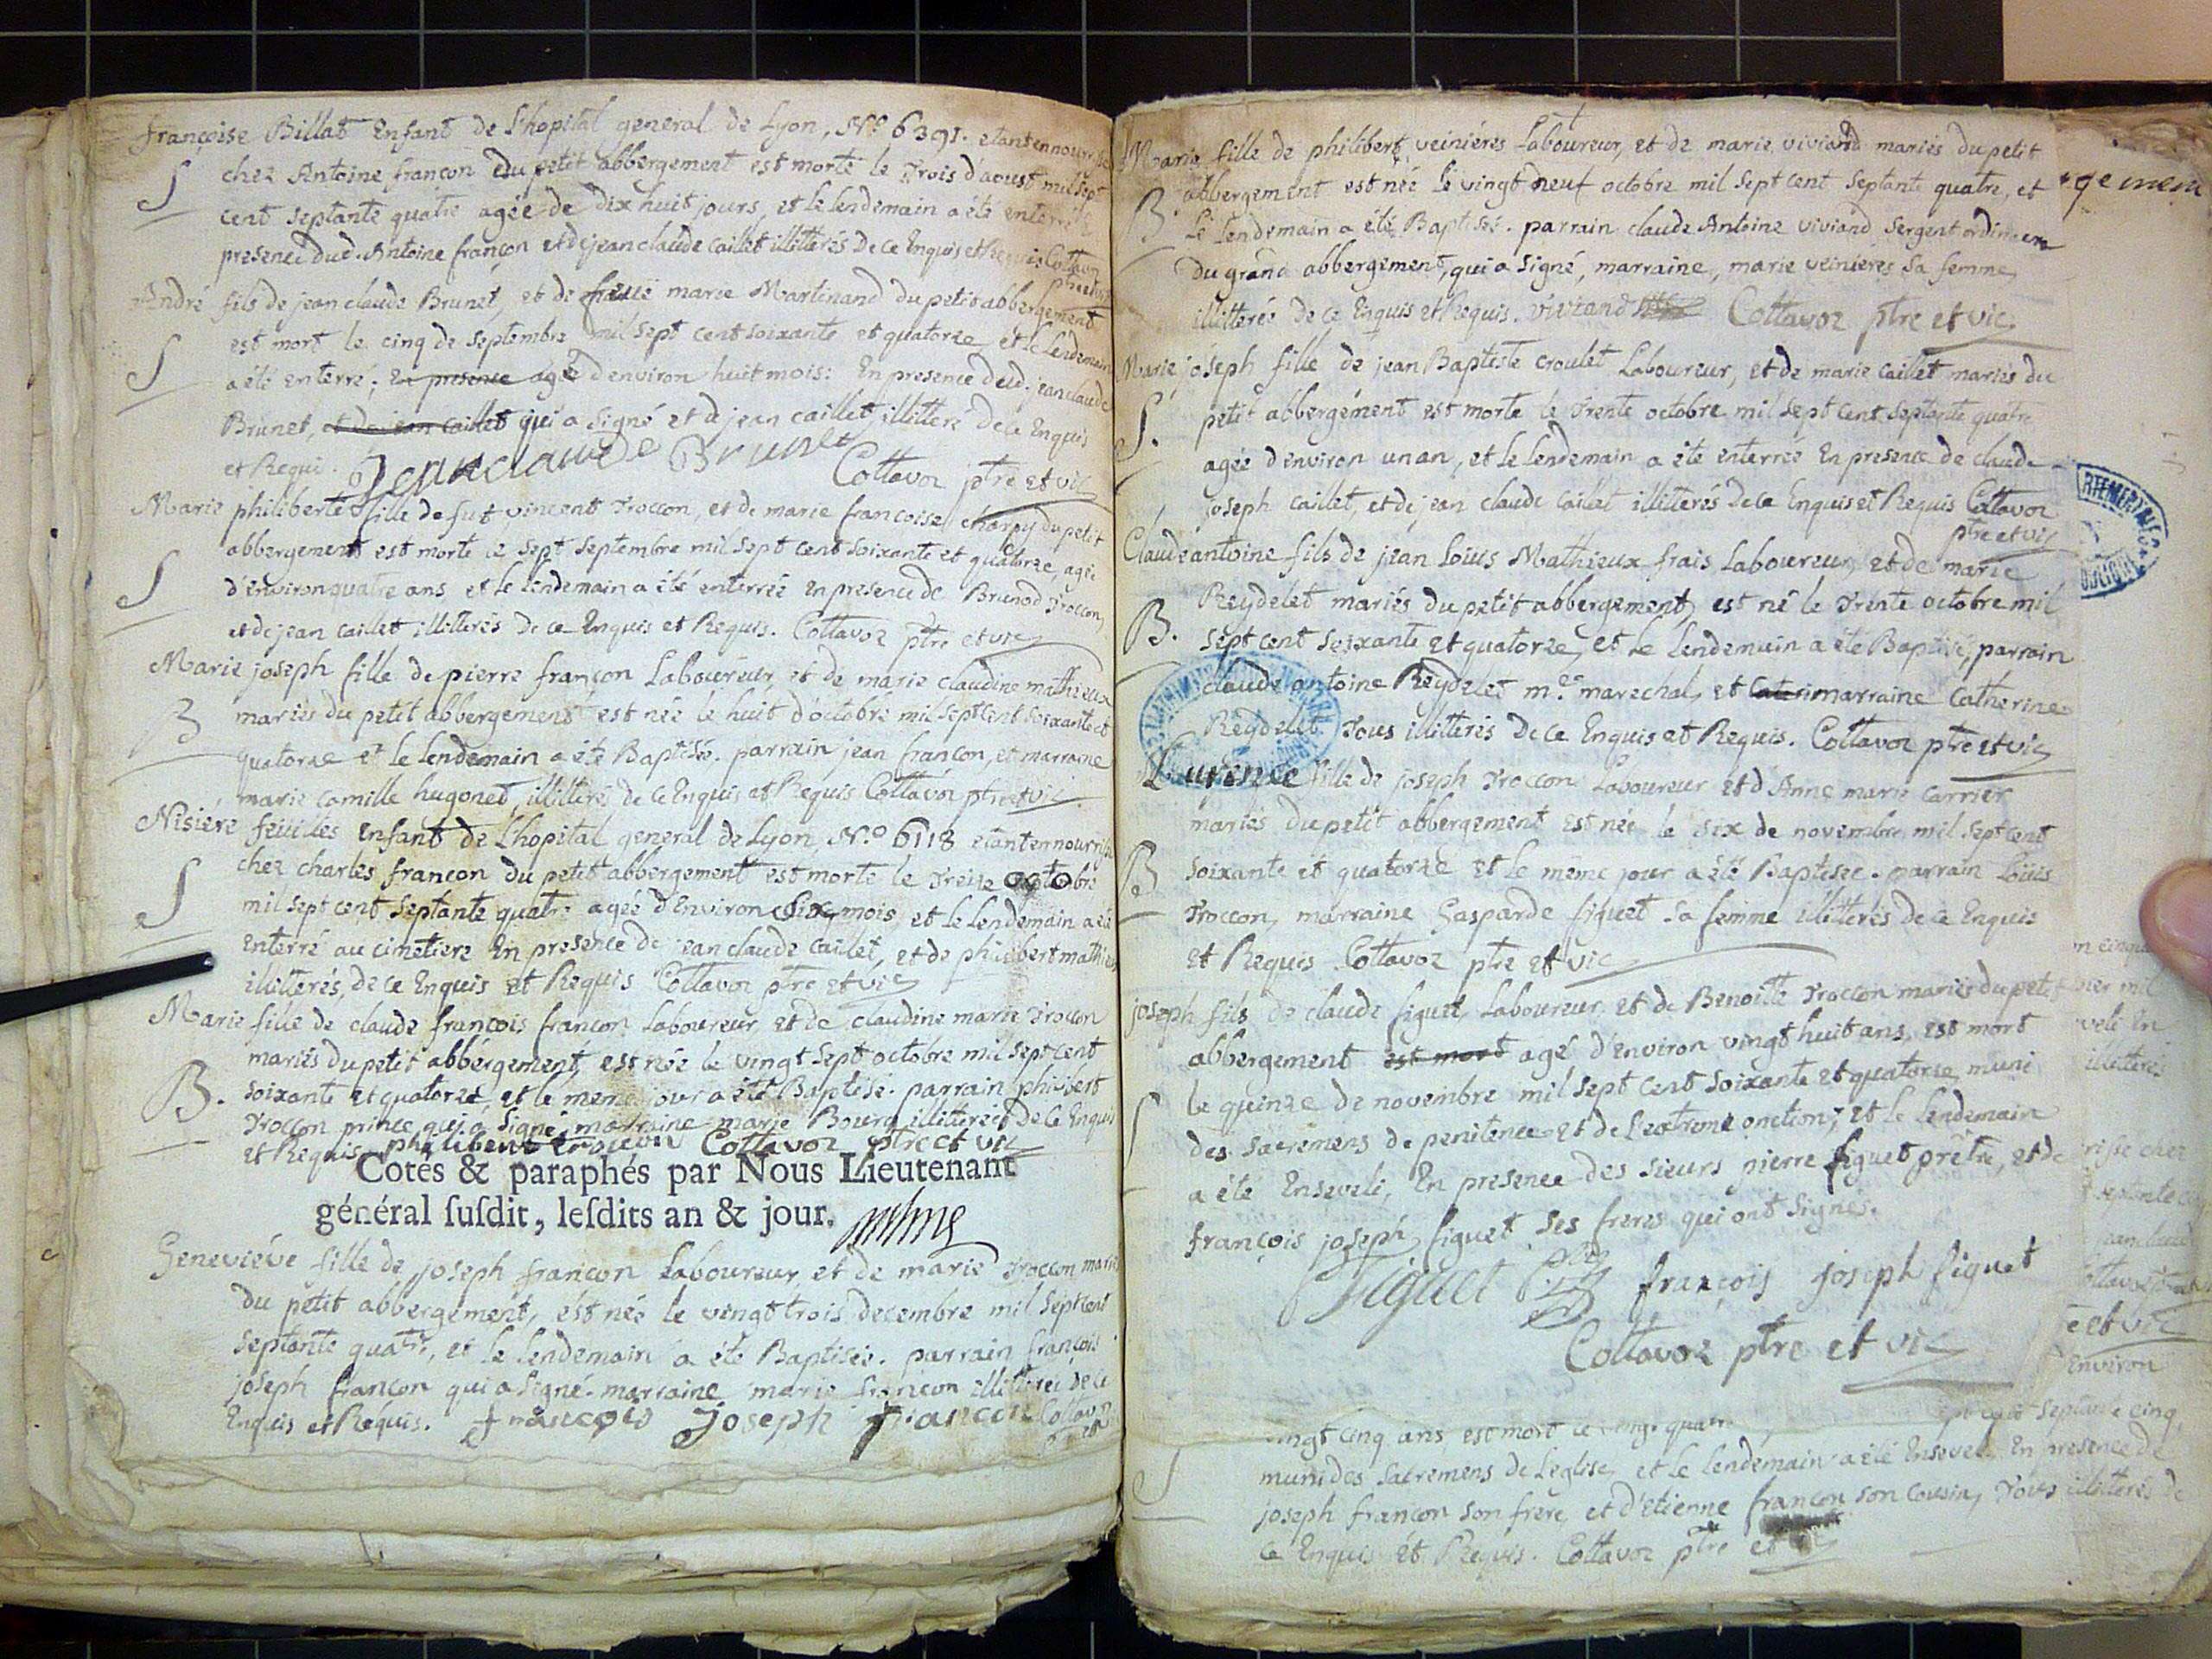 françoise Billat Enfant de l'hopital general de Lyon, N.º 6391. etant en nourrisse
S chez Antoine françon du petit abbergement est morte le Trois d'aoust mil sept
cent septante quatre agée de dix huit jours, et le lendemain a été enterrée
presence dud. Antoine françon et de jean claude caillet illitterés de ce Enquis et Requis Cottavoz
ptre et vic
André fils de jean claude Brunet, et de marie Martinand du petit abbergement
S est mort le cinq de septembre mil sept cent soixante et quatorze et le lendemain
a été enterré; En presence agée d'environ huit mois: En presence dud. jean claude
Brunet, et de jean caillet qui a signé et de jean caillet, illitteré de ce Enquis
et Requi. Jean claude Brunet Cottavoz ptre et vic
Marie philiberte fille de fut vincent Troccon, et de marie francoise charpy du petit
abbergement est morte le sept septembre mil sept cent soixante et quatorze, agée
S d'environ quatre ans et le lendemain a été enterrée en presence de Brunod Troccon,
et de jean caillet illitterés de ce Enquis et Requis. Cottavoz ptre et vic
Marie joseph fille de pierre françon Laboureur, et de marie claudine mathieux
B mariés du petit abbergement est née le huit d'octobre mil sept cent soixante et
quatorze et le lendemain a été Baptisée. parrain jean francon, et marraine
marie camille hugonet, illitterés de ce Enquis et Requis Cottavoz ptre et vic.
Nisiere feuilles enfant de l'hopital general de Lyon N.º 6118 etant en nourrisse
chez charles francon du petit abbergement est morte le Treize octobre
S mil sept cent septante quatre agée d'Environ six mois, et le lendemain a été
enterré au cimetiere En presence de jean claude caillet, et de philibert mathieux
illitterés, de ce Enquis et Requis Cottavoz ptre et vic
Marie fille de claude françois françon Laboureur, et de claudine marie Troccon
mariés du petit abbergement, est née le vingt sept octobre mil sept cent
B. soixante et quatorze, et le meme jour a été Baptisé. parrain philibert
Troccon prince qui a signé marraine marie Bourg illitterée De ce Enquis
et Requis philibert trocon Cottavoz ptre et vic
Cotés & paraphés par Nous Lieutenant
général susdit, lesdits an & jour.
Geneviéve fille de joseph francon Laboureur, et de marie Troccon mariés
du petit abbergement, est née le vingt trois decembre mil sept cent
septante quatre, et le lendemain a été Baptisée. parrain françois
joseph francon qui a signé. marraine marie francon illitterée de ce
Enquis et Requis. francois joseph francon Cottavoz
Marie fille de philibert veiniéres Laboureur, et de marie viviand mariés du petit
B. abbergement est née le vingt neuf octobre mil sept cent septante quatre, et
Le lendemain a été Baptisée. parrain claude Antoine viviand sergent ordinaire
du grand abbergement, qui a signé, marraine, marie veinieres sa femme
illitterés de ce Enquis et Requis. viviand Cottavoz ptre et vic
Marie joseph fille de jean Baptiste croulet Laboureur, et de marie caillet mariés du
S. petit abbergement est morte le Trente octobre mil sept cent septante quatre
agée d'environ un an, et le lendemain a été enterrée En presence de claude
joseph caillet, et de jean claude caillet illitterés de ce Enquis et Requis Cottavoz
ptre et vic
Claude antoine fils de jean louis Mathieux frais Laboureur, et de marie
Reydelet mariés du petit abbergement, est né le Trente octobre mil
B. sept cent soixante et quatorze, et le lendemain a été Baptisé, parrain
claude antoine Reydelet m.e marechal, et cateri marraine catherine
Reydelet Tous illitterés de ce Enquis et Requis. Cottavoz ptre et vic
Laurence fille de joseph Troccon Laboureur et d'Anne marie carrier
mariés du petit abbergement est née le six de novembre mil sept cent
B soixante et quatorze et le même jour a été Baptisée. parrain Louis
Troccon, marraine Gasparde figuet sa femme illitterés de ce Enquis
et Requis. Cottavoz ptre et vic
joseph fils de claude figuet Laboureur, et de Benoitte Troccon mariés du petit
abbergement est mort agé d'environ vingt huit ans, est mort
S le quinze de novembre mil sept cent soixante et quatorze muni
des sacremens de penitence et de l'extreme onction; et le lendemain
a été Enseveli, En presence des sieurs pierre figuet prêtre, et de
françois joseph figuet ses freres qui ont signés.
Figuet ptre françois joseph figuet
Cottavoz ptre et vic
ept cent septante cinq
ingt cinq ans, est mort le vingt quatre
S muni des sacremens de l'eglise, et le lendemain a été Enseveli En presence de
joseph francon son frere, et d'etienne francon son cousin, Tous illitterés de
ce Enquis et Requis. Cottavoz ptre et vic
gement
ARTEMENTALES
vier mil
veli En
illitterés
risse chez
jean claude
e et vic
d'Environ